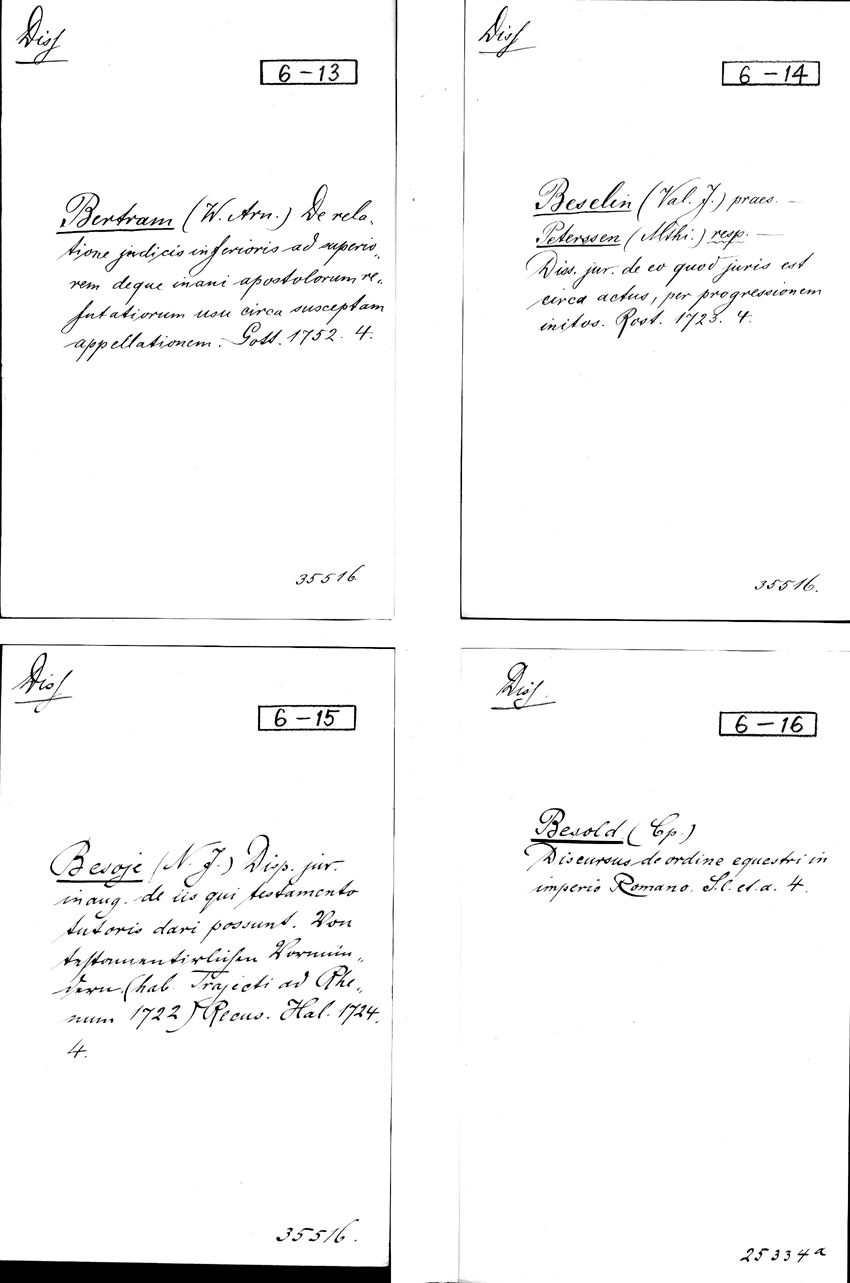 Diss
6-13
Bertram (W. Arn.) De rela-
tione judicis inferioris ad superio-
rem deque inani apostolorum re-
futatiorum usu circa susceptam
appellationem. Gott. 1752. 4.
35516.
Diss
6-14
Beselin (Val. J.) praes. —
Peterssen (Mthi.) resp. —
Diss. jur. de eo quod juris est
circa actus, per progressionem
initos. Rost. 1723. 4.
35516.
Diss
6-15
Besoje (N. J.) Disp. jur.
inaug. de iis qui testamento
tutoris dari possunt. Von
testamentirlichen Vormün-
dern. (hab. Trajecti ad Rhe-
num 1722) Recus. Hal. 1724.
4.
35516.
Diss.
6-16
Besold (Cp.)
Discursus de ordine equestri in
imperio Romano. S. l. et. a. 4.
25334a